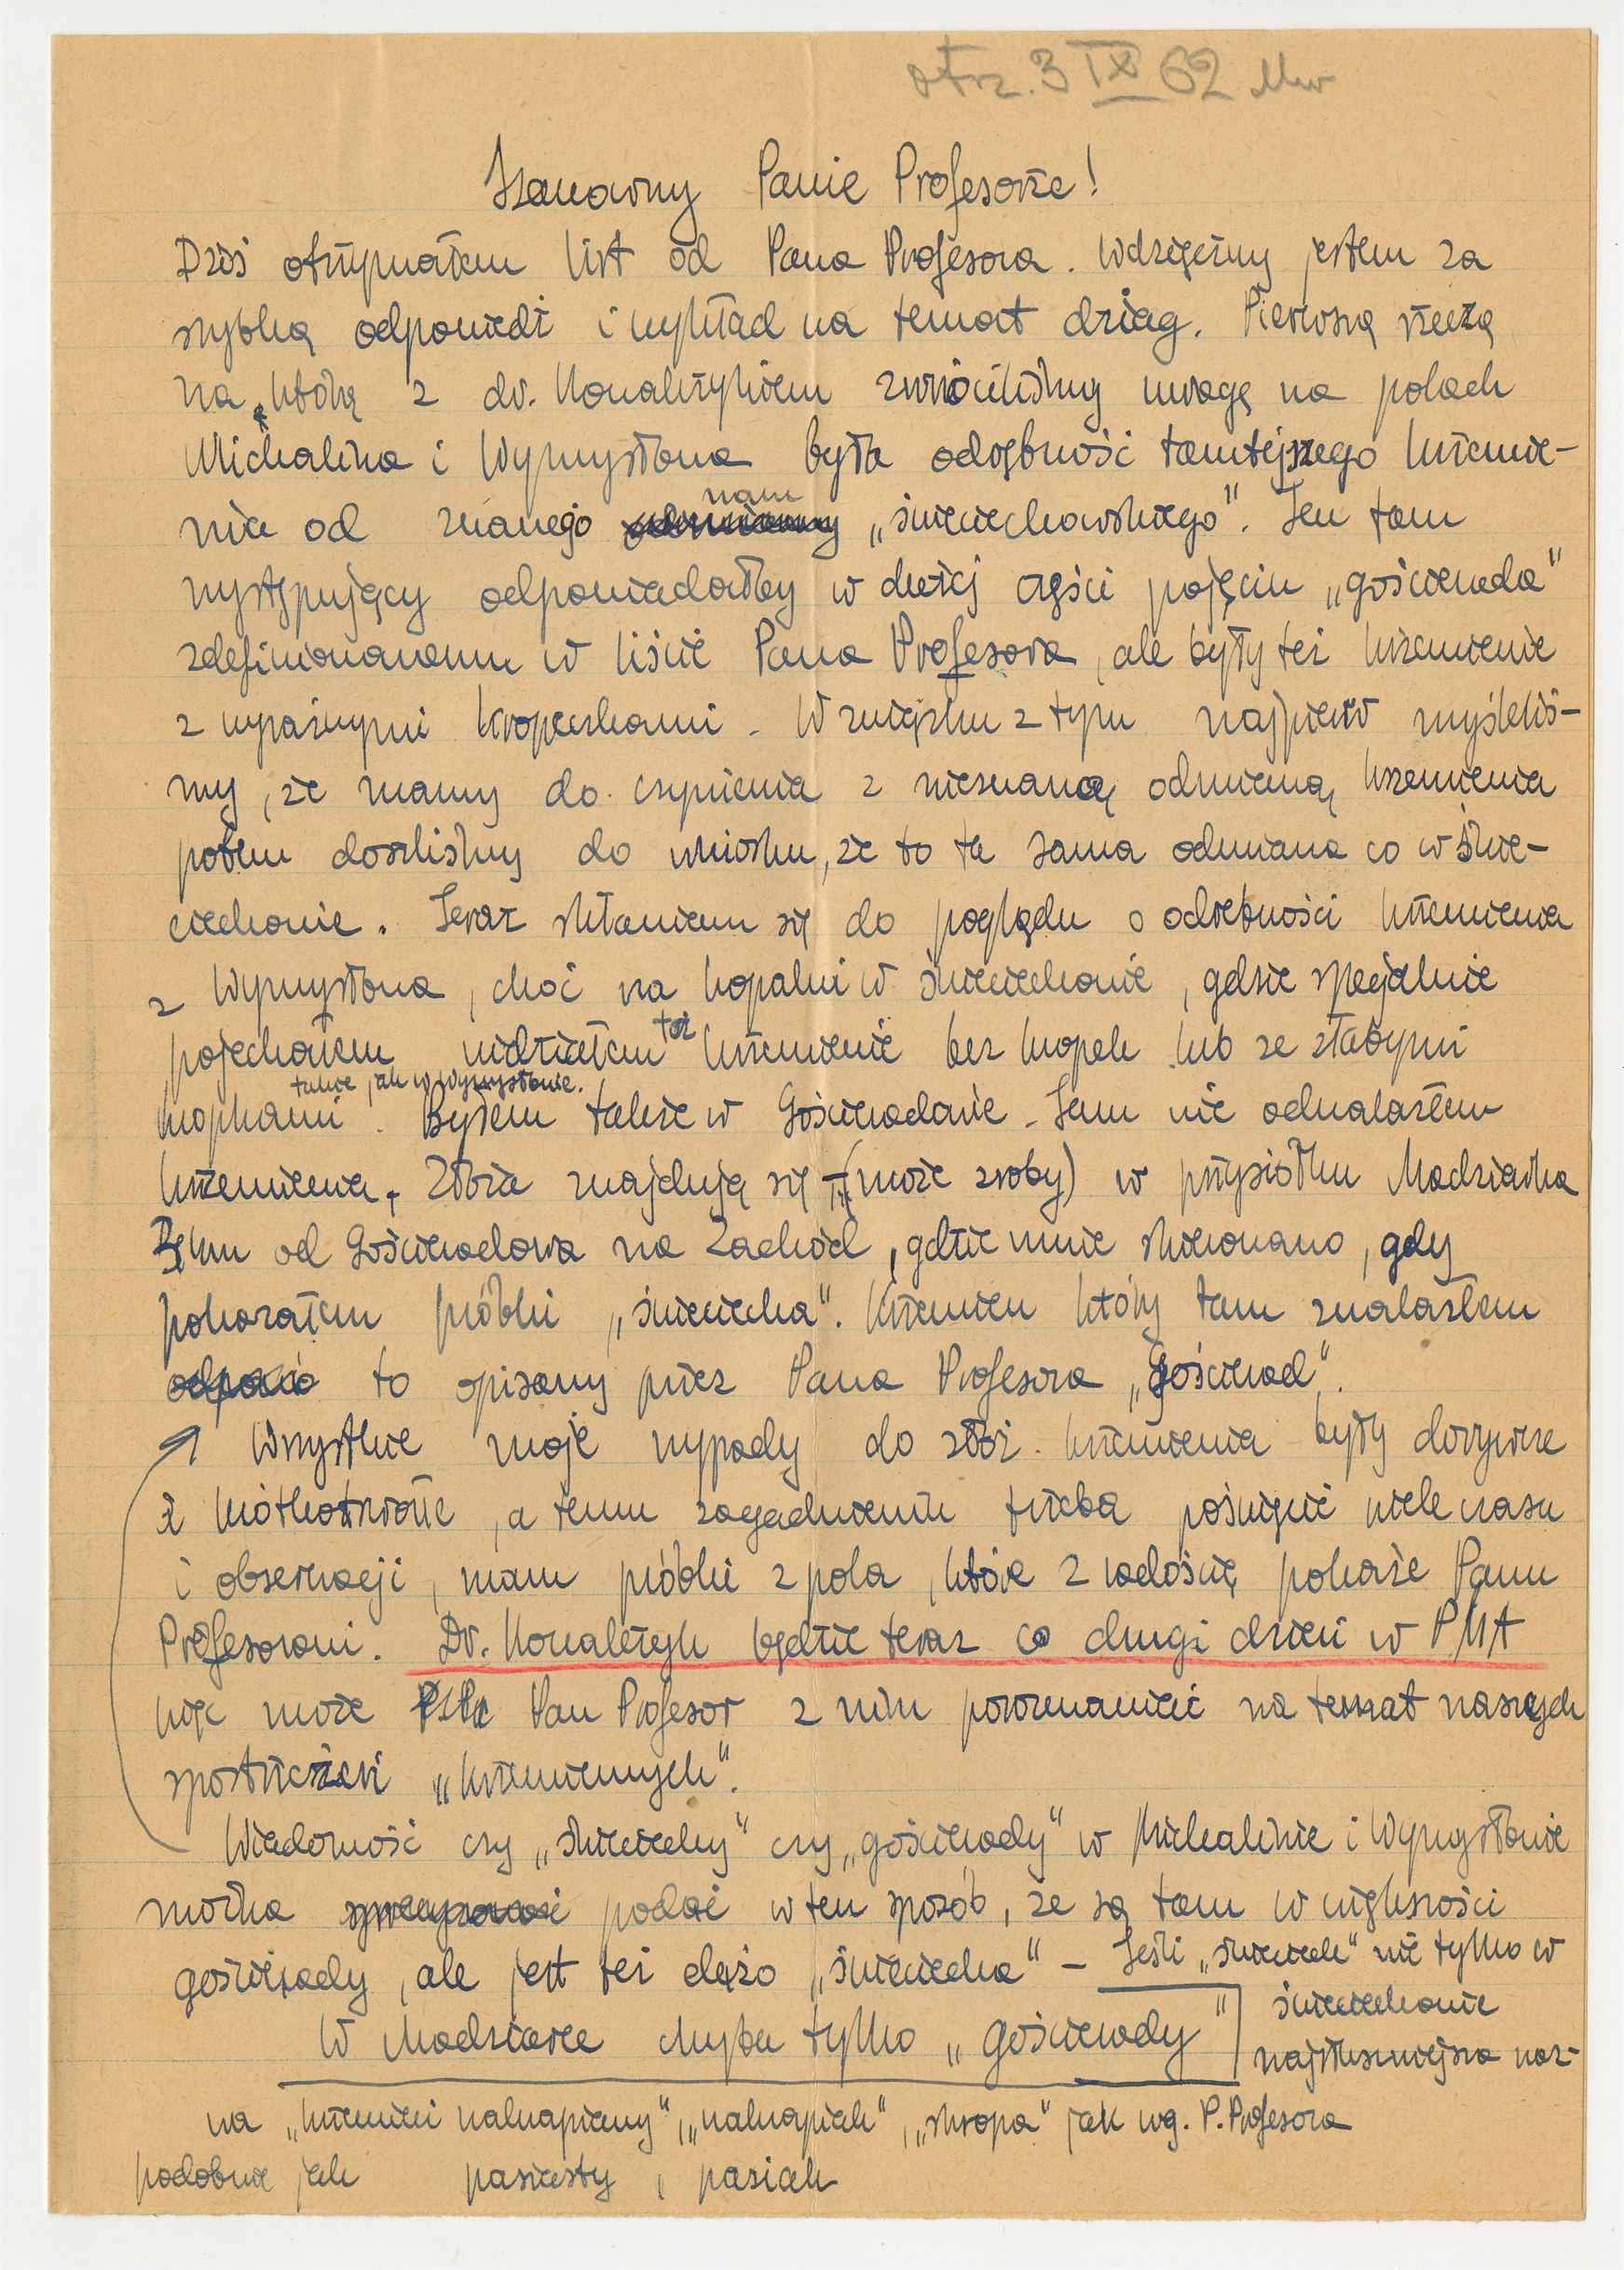 otrz. 3 IX 62
Szanowny Panie Profesorze!
Dziś otrzymałem list od Pana Profesora. Wdzięczny jestem za
szybką odpowiedź i wykład na temat dziag. Pierwszą rzeczą
na którą z dr. Kowalczykiem zwróciliśmy uwagę na polach
Michalina i Wymysłowa była odrębność tamtejszego krzemie-
nia od znanego nam „świeciechowskiego". Ten tam
występujący odpowiadałby w dużej części pojęciu „gościerada"
zdefiniowanemu w liście Pana Profesora, ale były też krzemienie
z wyraźnymi kropeczkami. W związku z tym najpierw myśleliś-
my, że mamy do czynienia z nieznaną odmianą krzemienia
potem doszliśmy do wniosku, że to ta sama odmiana co w Świe-
ciechowie. Teraz skłaniam się do poglądu o odrębności krzemienia
z Wymysłowa, choć na kopalni w Świeciechowie, gdzie specjalnie
pojechałem widziałem też krzemienie bez kropek lub ze słabymi
kropkami takie jak w Wymysłowie. Byłem także w Gościeradowie. Tam nie odnalazłem
krzemienia. Złoża znajdują się (może złoby) w przysiółku Madziarka
km od Gościeradowa na Zachód, gdzie mnie skierowano, gdy
pokazałem próbki „świeciecha". Krzemień który tam znalazłem
to opisany przez Pana Profesora „Gościerad".
Wszystkie moje wypady do złóż krzemienia były dorywcze
i krótkotrwałe, a temu zagadnieniu trzeba poświęcić wiele czasu
i obserwacji, mam próbki z pola, które z radością pokażę Panu
Profesorowi. Dr. Kowalczyk będzie teraz co drugi dzień w PMA
więc może Pan Profesor z nim porozmawiać na temat naszych
spostrzeżeń „krzemiennych".
Wiadomość czy „świeciechy" czy „gościerady" w Michalinie i Wymysłowie
można podać w ten sposób, że są tam w większości
gościerady, ale jest też dużo „świeciecha" – Jeśli „świeciech" nie tylko w
Świeciechowie
W Madziarce chyba tylko „gościerady"
najsłuszniejsza naz-
wa „krzemień nakrapiany", „nakrapiak", „skropa" jak wg. P. Profesora
podobnie jak pasiasty, pasiak